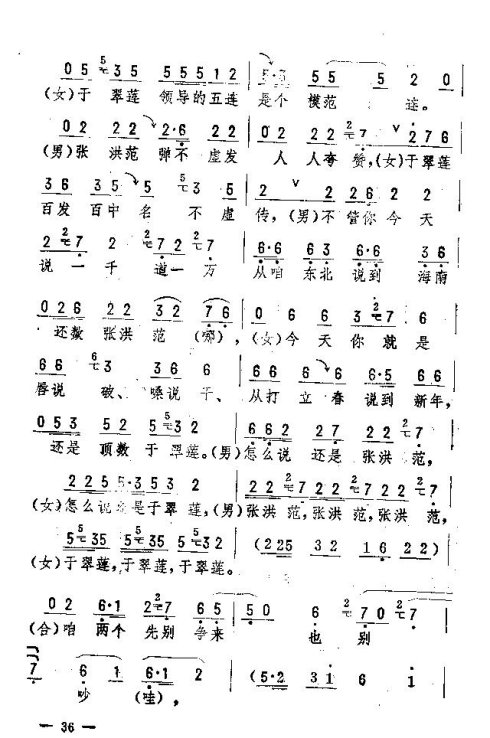 0 5 5 3 5 5 5 5 1 2 | 5·3 5 5 5 2 0 |
(女)于 翠莲 领导的五连 是个 模范 连。
0 2 2 2 2·6 2 2 | 0 2 2 2 2 7 2 7 6 |
(男)张 洪范 弹不 虚发 人 人夸 赞,(女)于翠莲
3 6 3 5 5 5 3 5 | 2 2 2 6 2 2 |
百发 百中 名 不 虚 传,(男)不 管你 今 天
2 7 2 7 2 2 7 | 6·6 6 3 6·6 3 6 |
说 一 千 道一 万 从咱 东北 说到 海南
0 2 6 2 2 3 2 7 6 | 0 6 6 3 2 7 6 |
还数 张洪 范 (哪),(女)今 天 你 就 是
6 6 6 3 3 6 6 | 6 6 6 6·5 6 6 |
唇说 破、嗓说 干、 从打 立春 说到 新年,
0 5 3 5 2 5 3 2 | 6 6 2 2 7 2 2 2 7 |
还是 顶数 于翠莲。(男)怎么说 还是 张洪 范,
2 2 2 5 5·3 5 2 | 7 2 2 2 7 2 2 2 7 2 2 2 7 |
(女)怎么说还是于翠莲,(男)张洪 范,张洪 范,张洪 范,
5 3 5 5 3 5 5 3 2 | (2 2 5 3 2 1 6 2 2) |
(女)于翠莲,于翠莲,于翠莲。
0 2 6·1 2 7 6 5 | 5 0 6 2 7 0 2 7 |
(合)咱 两个 先别 争来 也 别
7 6 1 6·1 2 | (5·2 3 1 6 1 |
吵 (哇),
— 36 —